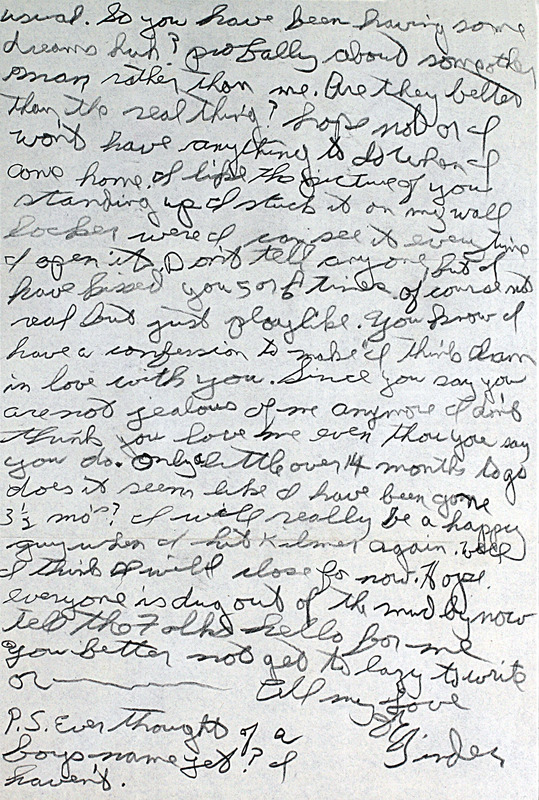 usual. So you have been having some
dreams huh? probally about some other
man rather than me. Are they better
than the real thing? hope not or I
won't have anything to do when I
come home. I like the picture of you
standing up I stuck it on my wall
locker were I can see it every time
I open it. Don't tell anyone, but I
have kissed you 5 or 6 times. of course not
real but just play like. You know I
have a confession to make I think I am
in love with you. Since you say you
are not jealous of me anymore I don't
think you love me even thou you say
you do. Only a little over 14 months to go
does it seem like I have been gone
3½ mo's? I will really be a happy
guy when I hit Kilmer again. well
I think I will close fo now. Hope
everyone is dug out of the mud by now
tell the Folks hello for me
you better not get to lazy to write
or
till my love
P.S. Ever thought of a
boys name yet? I
haven't.